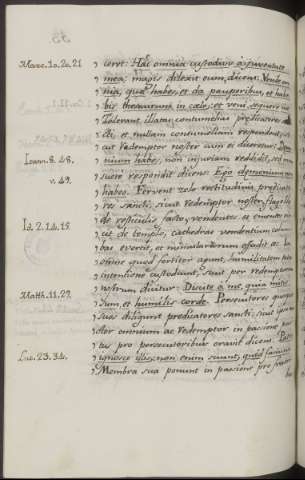 Marc. 10. 20. 21
ceret: Haec omnia custodivi a juventute
mea: magis dilexit eum, dicens: Vende om-
nia, quae habes, et da pauperibus, et habe-
bis thesaurum in caelo: et veni sequere me
Tolerant illatas contumelias predicatores
cti, et nullam contumeliam respondent; si-
cut redemptor noster cum ei diceretur: De-
Joann. 8. 48.
nium habes, non injuriam reddidit, sed
suete respondit dicens: Ego demonium non
v. 49.
habeo. Fervent zelo rectitudinis predicato-
res sancti, sicut redemptor noster flagello
de resticulis facto, vendentes et ementes
Id. 2. 14. 15.
cit de templo, cathedras vendentium colum-
bas evertit, et numulariorum effudit ae
omne quod fortiter agunt, humilitatem
intentione custodiunt, sicut per redemptorem
nostrum dicitur: Discite a me, quia mitis
Matth. 11. 29.
sum, et humilis corde. Persecutores quoque
suos diligunt predicatores sancti; sicut
ctor omnium ac redemptor in passione
tus pro persecutoribus oravit dicens: Pater
Luc. 23. 34.
ignosce illis; non enim sciunt, quid faciunt
Membra sua ponunt in passione pro